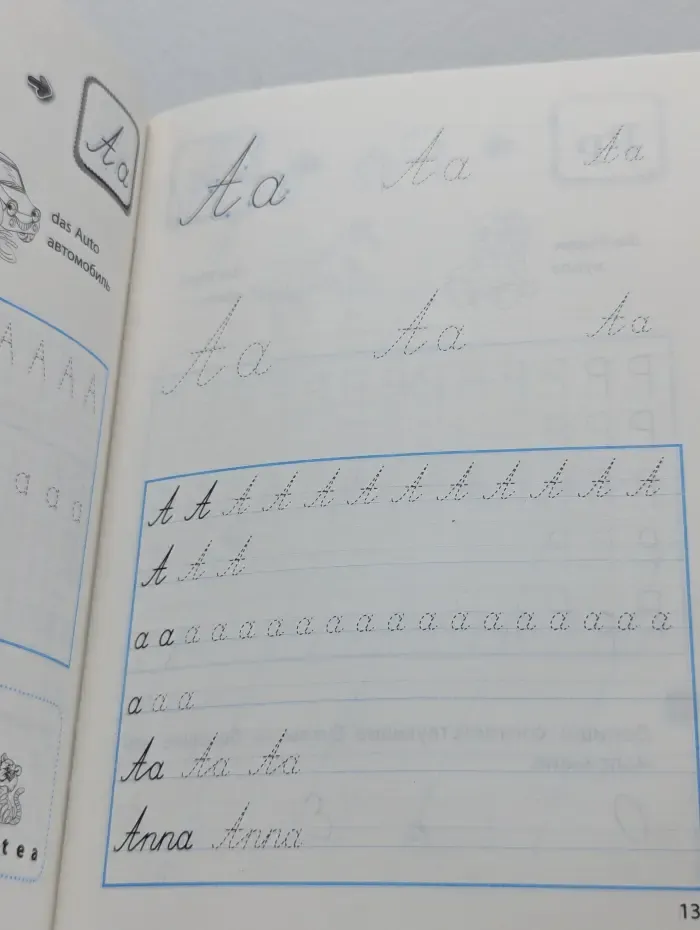 Aa
das Auto
автомобиль
A A A A
a a a
t e a
Aa Aa Aa
Aa Aa Aa
A A A A A A A A A A A A
A A A
a a a a a a a a a a a a a a a a a a
a a a
Aa Aa Aa
Anna Anna
13